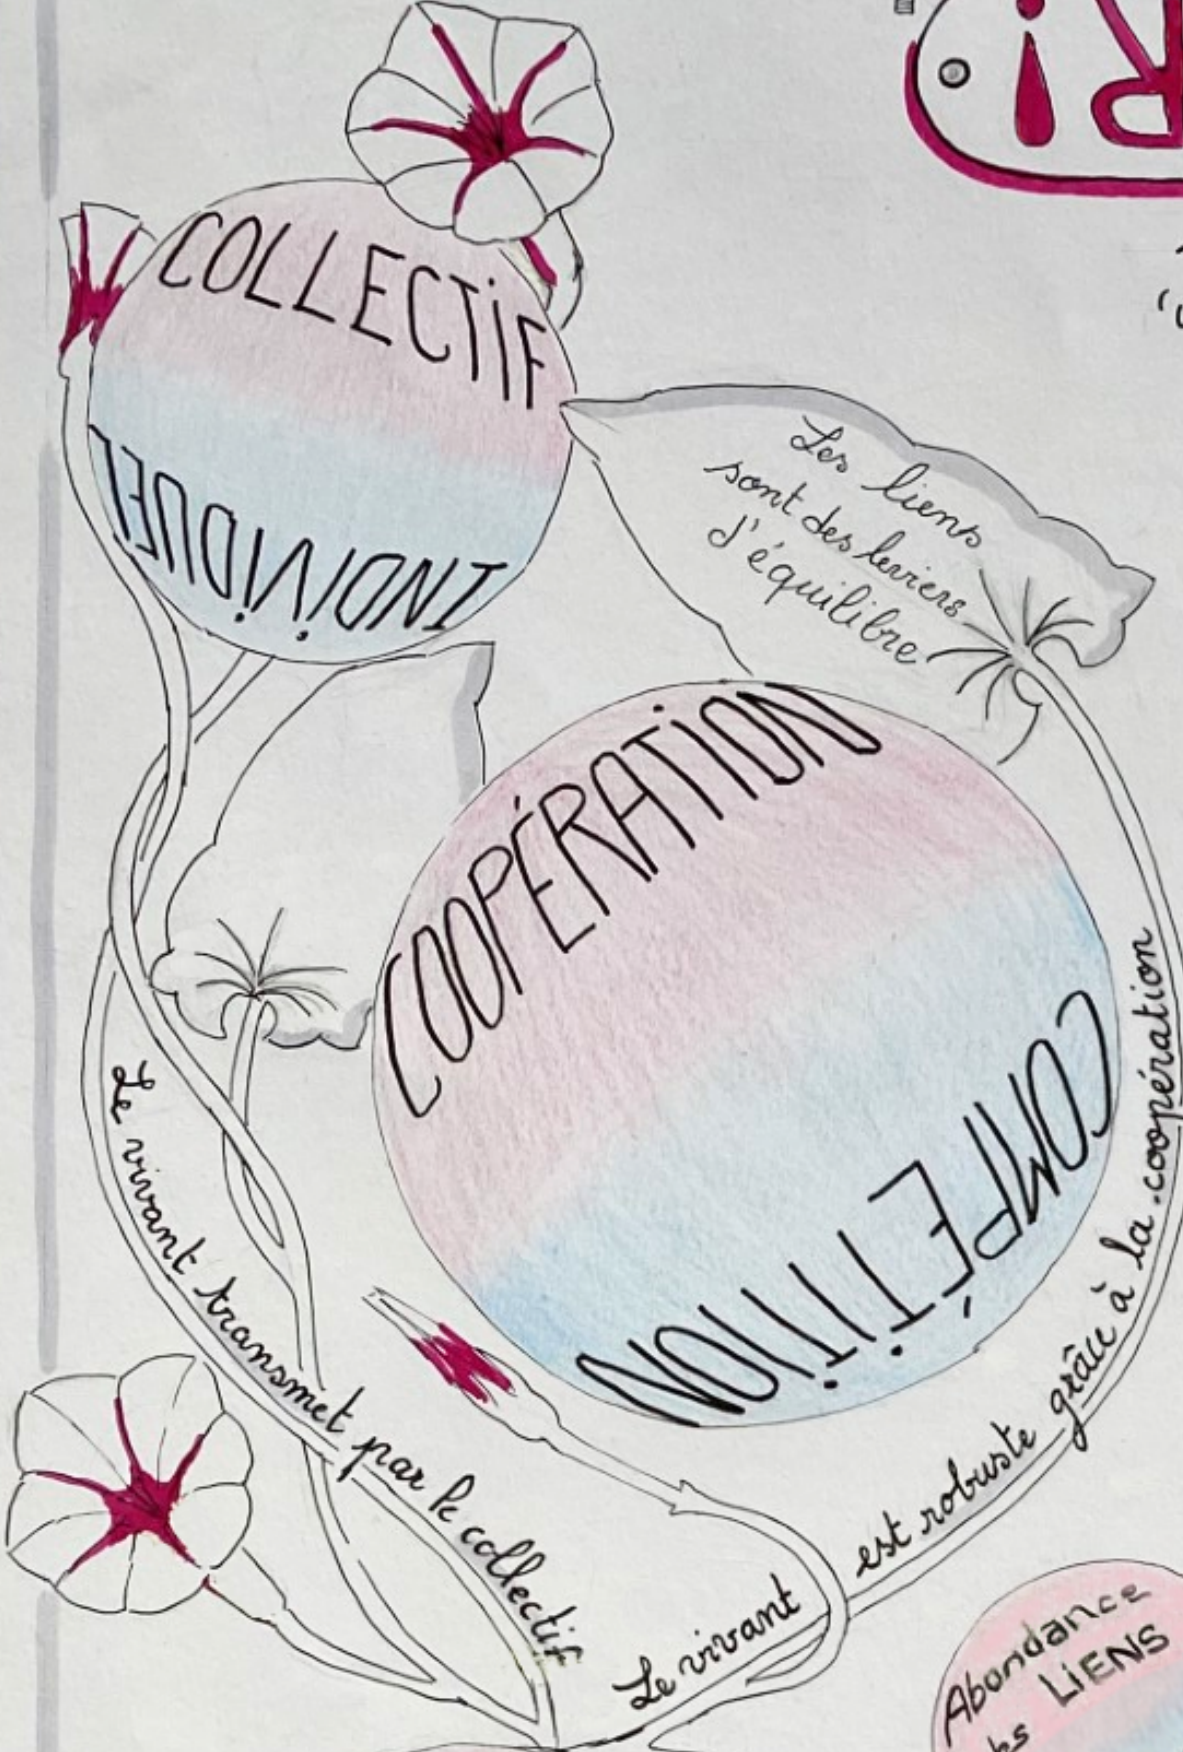 COLLECTIF
INDIVIDUEL
Les liens
sont des leviers
d'équilibre
COOPÉRATION
COMPÉTITION
Le vivant transmet par le collectif
Le vivant est robuste grâce à la coopération
Abondance
LiENS